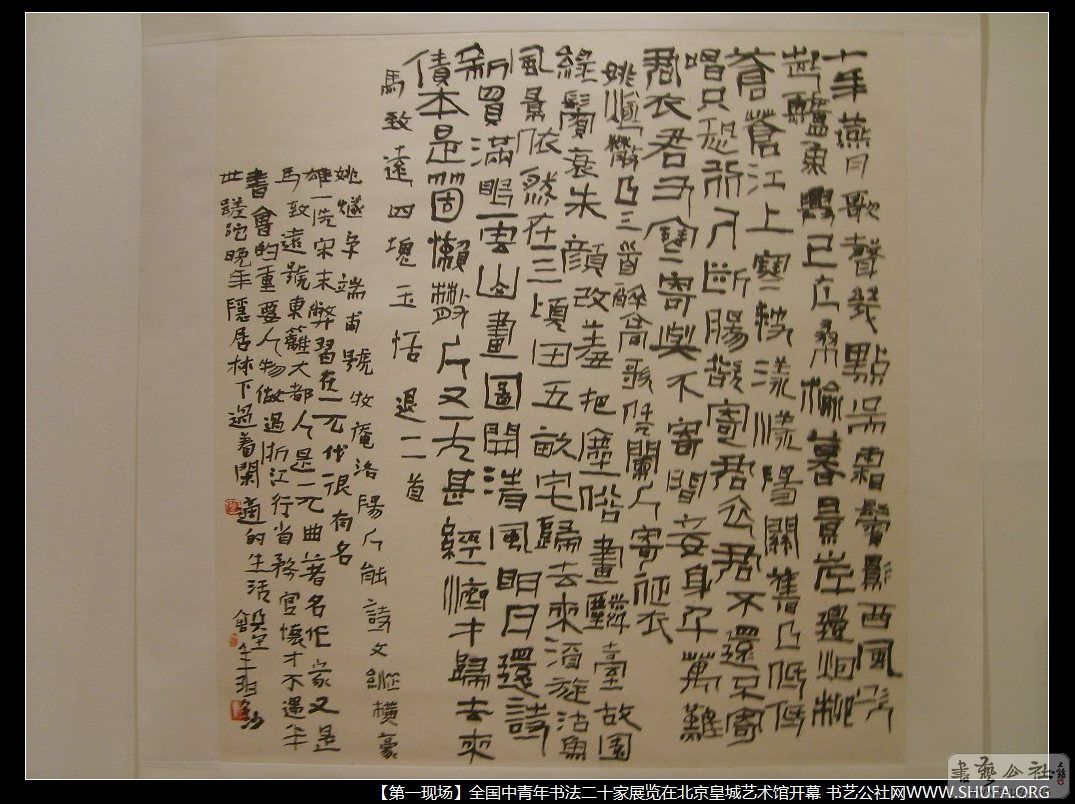 十年燕月歌聲幾點吳霜鬢影西風吹
起鱸魚興已在桑榆暮景岸邊烟柳
蒼蒼江上寒波漾漾陽關舊曲低低
唱只恐行人斷腸欲寄君衣君不還不寄
君衣君又寒寄與不寄間妾身千萬難
姚燧散曲三首醉高歌凭闌人寄征衣
綠鬢衰朱顏改羞把塵俗畫麟臺故園
風景依然在三頃田五畝宅歸去來酒旋沽魚
新買滿眼雲山畫圖開清風明月還詩
債本是箇懶散人又无甚經濟才歸去來
馬致遠四塊玉恬退二首
姚燧字端甫號牧庵洛陽人能詩文縱橫豪
雄一洗宋末弊習在元代很有名
馬致遠號東籬大都人是元曲著名作家又是
書會的重要人物做過浙江行省務官懷才不遇半
世蹉跎晚年隱居林下過着闌適的生活
書藝公社
【第一现场】全国中青年书法二十家展览在北京皇城艺术馆开幕 书艺公社网WWW.SHUFA.ORG